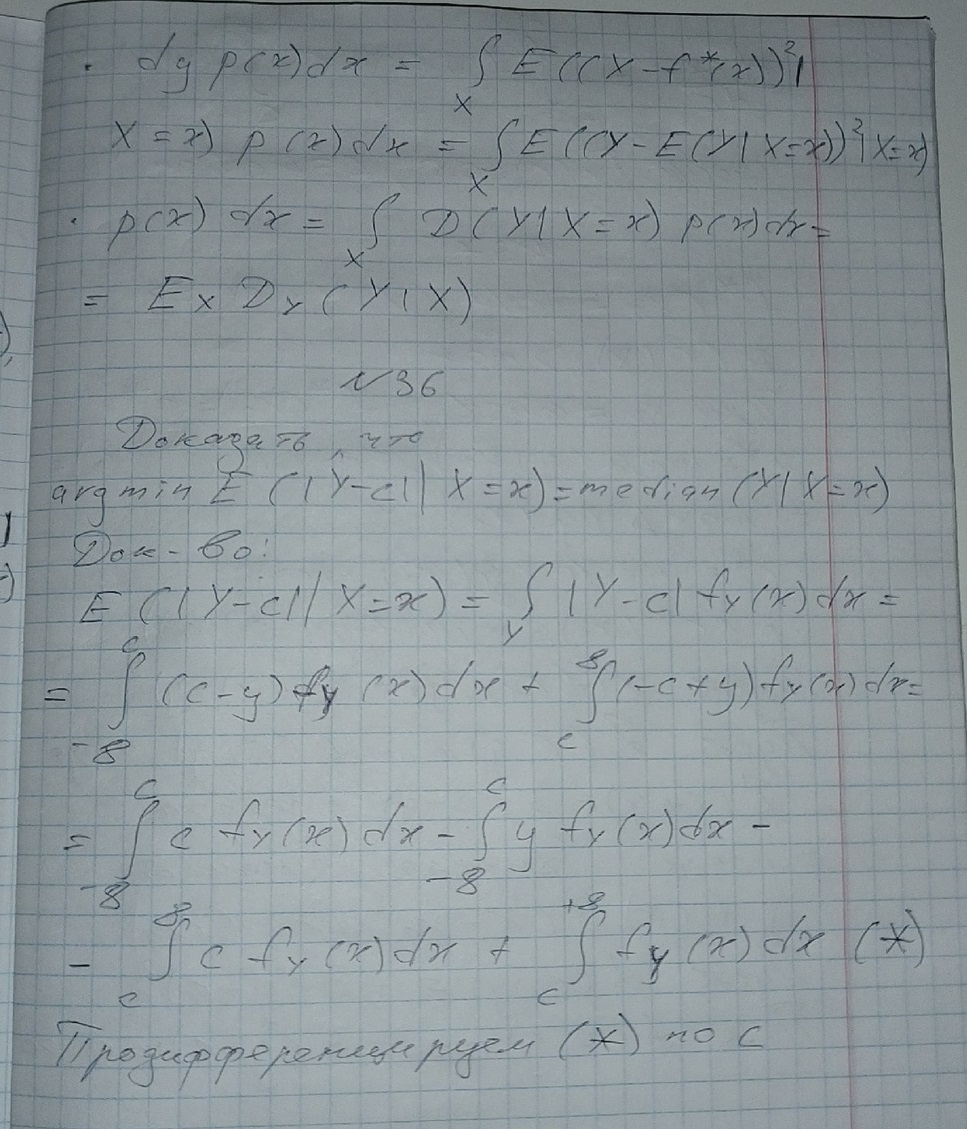 · dy p(x)dx = ∫_X E((Y-f*(x))²|
X=x) p(x)dx = ∫_X E((Y-E(Y|X=x))²|X=x)
· p(x) dx = ∫_X D(Y|X=x) p(x)dx =
= E_X D_Y(Y|X)
№36
Доказать, что
argmin E(|Y-c| | X=x)=median(Y|X=x)
Док-во:
E(|Y-c| | X=x) = ∫_Y |Y-c| f_Y(x)dx =
= ∫_{-∞}^{c} (c-y) f_Y(x)dx + ∫_{c}^{∞} (-c+y) f_Y(x)dx =
= ∫_{-∞}^{c} c f_Y(x)dx - ∫_{-∞}^{c} y f_Y(x)dx -
- ∫_{c}^{∞} c f_Y(x)dx + ∫_{c}^{+∞} f_Y(x)dx (*)
Продифференцируем (*) по c